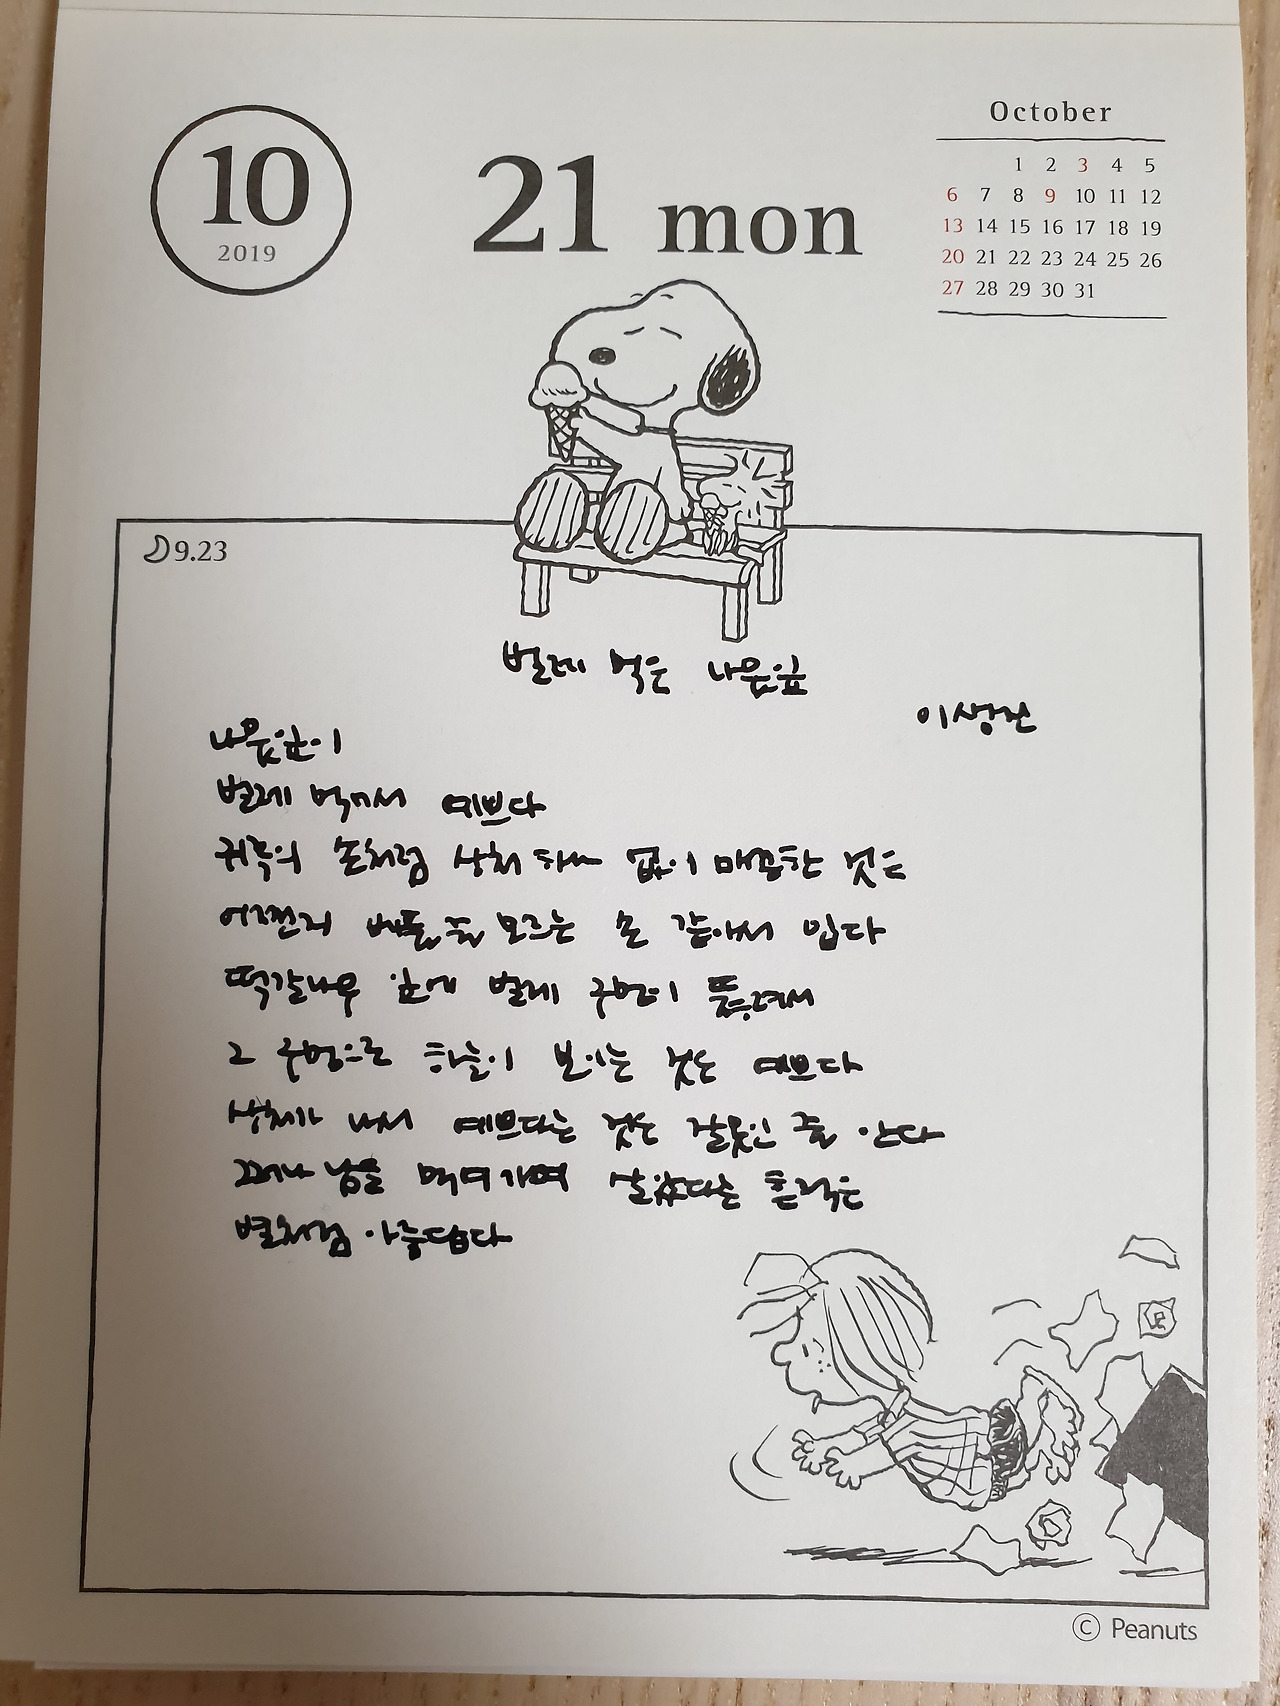 10
2019
21 mon
October
1 2 3 4 5
6 7 8 9 10 11 12
13 14 15 16 17 18 19
20 21 22 23 24 25 26
27 28 29 30 31
9.23
벌레 먹은 나뭇잎
이생진
나뭇잎이
벌레 먹어서 예쁘다
귀족의 손처럼 상처 하나 없이 매끈한 것은
어쩐지 베풀 줄 모르는 손 같아서 밉다
떡갈나무 잎에 벌레 구멍이 뚫려서
그 구멍으로 하늘이 보이는 것은 예쁘다
상처가 나서 예쁘다는 것은 잘못인 줄 안다
그러나 남을 먹여가며 살았다는 흔적은
별처럼 아름답다
© Peanuts